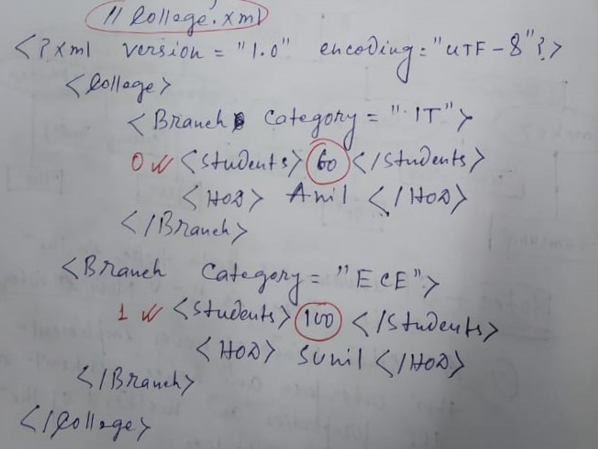 // Collage.xml
<?xml version = "1.0" encoding="UTF-8"?>
<Collage>
<Branch Category = "IT">
0 <Students> 60 </Students>
<HOD> Anil </HOD>
</Branch>
<Branch Category = "ECE">
1 <Students> 100 </Students>
<HOD> Sunil </HOD>
</Branch>
</Collage>